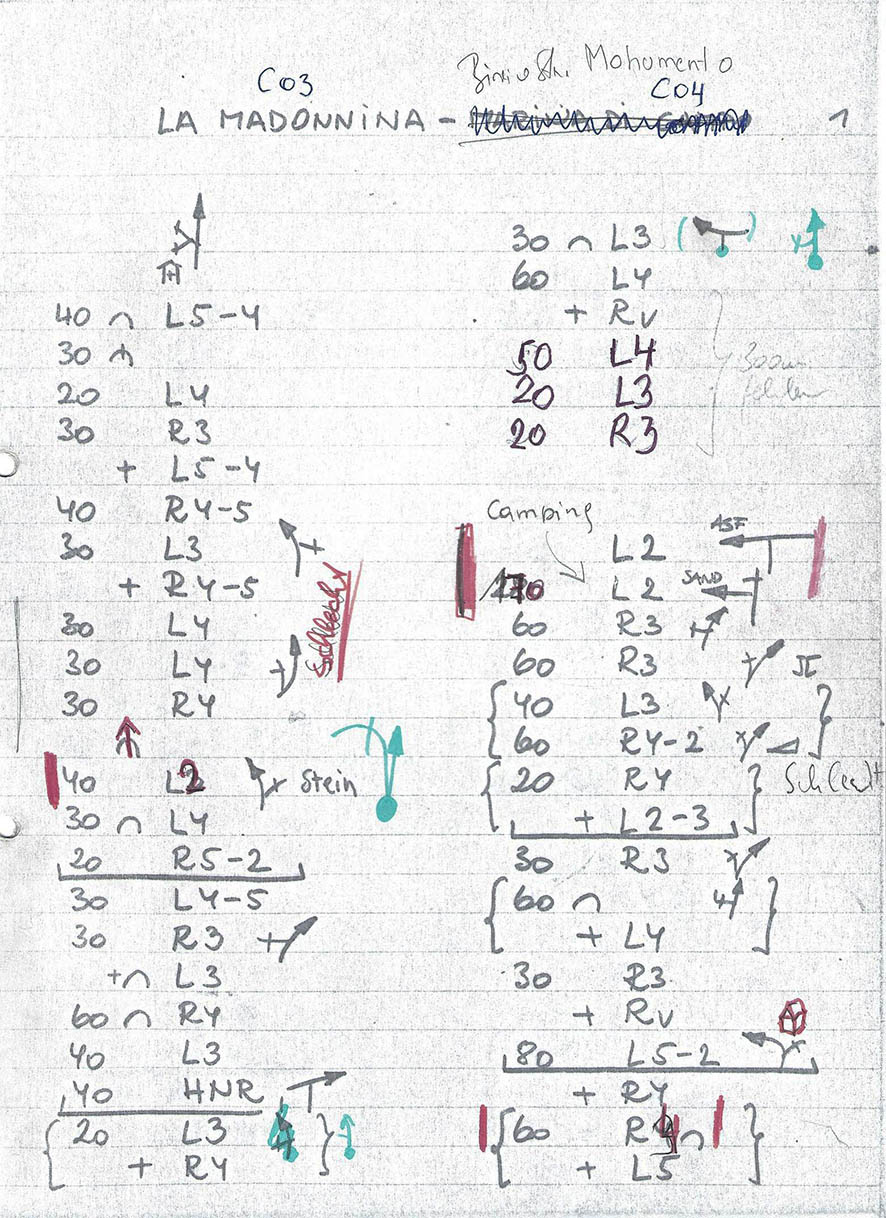 Monumento
C03 C04
LA MADONNINA - 1
40 ∩ L5-4
30 ∩
20 L4
30 R3
+ L5-4
40 R4-5
30 L3
+ R4-5
30 L4
30 L4
30 R4
Schlecht
40 L2 Stein
30 ∩ L4
20 R5-2
30 L4-5
30 R3
+∩ L3
60 ∩ R4
40 L3
40 HNR
20 L3
+ R4
30 ∩ L3
60 L4
+ RV
50 L4
20 L3
20 R3
300m fehlen
Camping
L2 ASF
L2 SAND
60 R3
60 R3
40 L3
60 R4-2
20 R4 Schlecht
+ L2-3
30 R3
60 ∩
+ L4
30 R3
+ RV
80 L5-2
+ R4
60 R ∩
+ L5